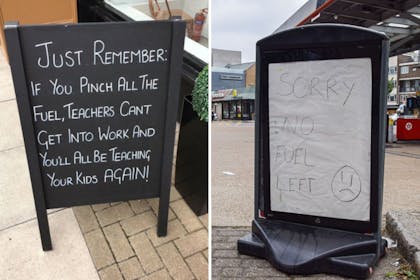 JUST REMEMBER:
IF YOU PINCH ALL THE
FUEL, TEACHERS CANT
GET INTO WORK AND
YOU'LL ALL BE TEACHING
YOUR KIDS AGAIN!
SORRY
NO
FUEL
LEFT